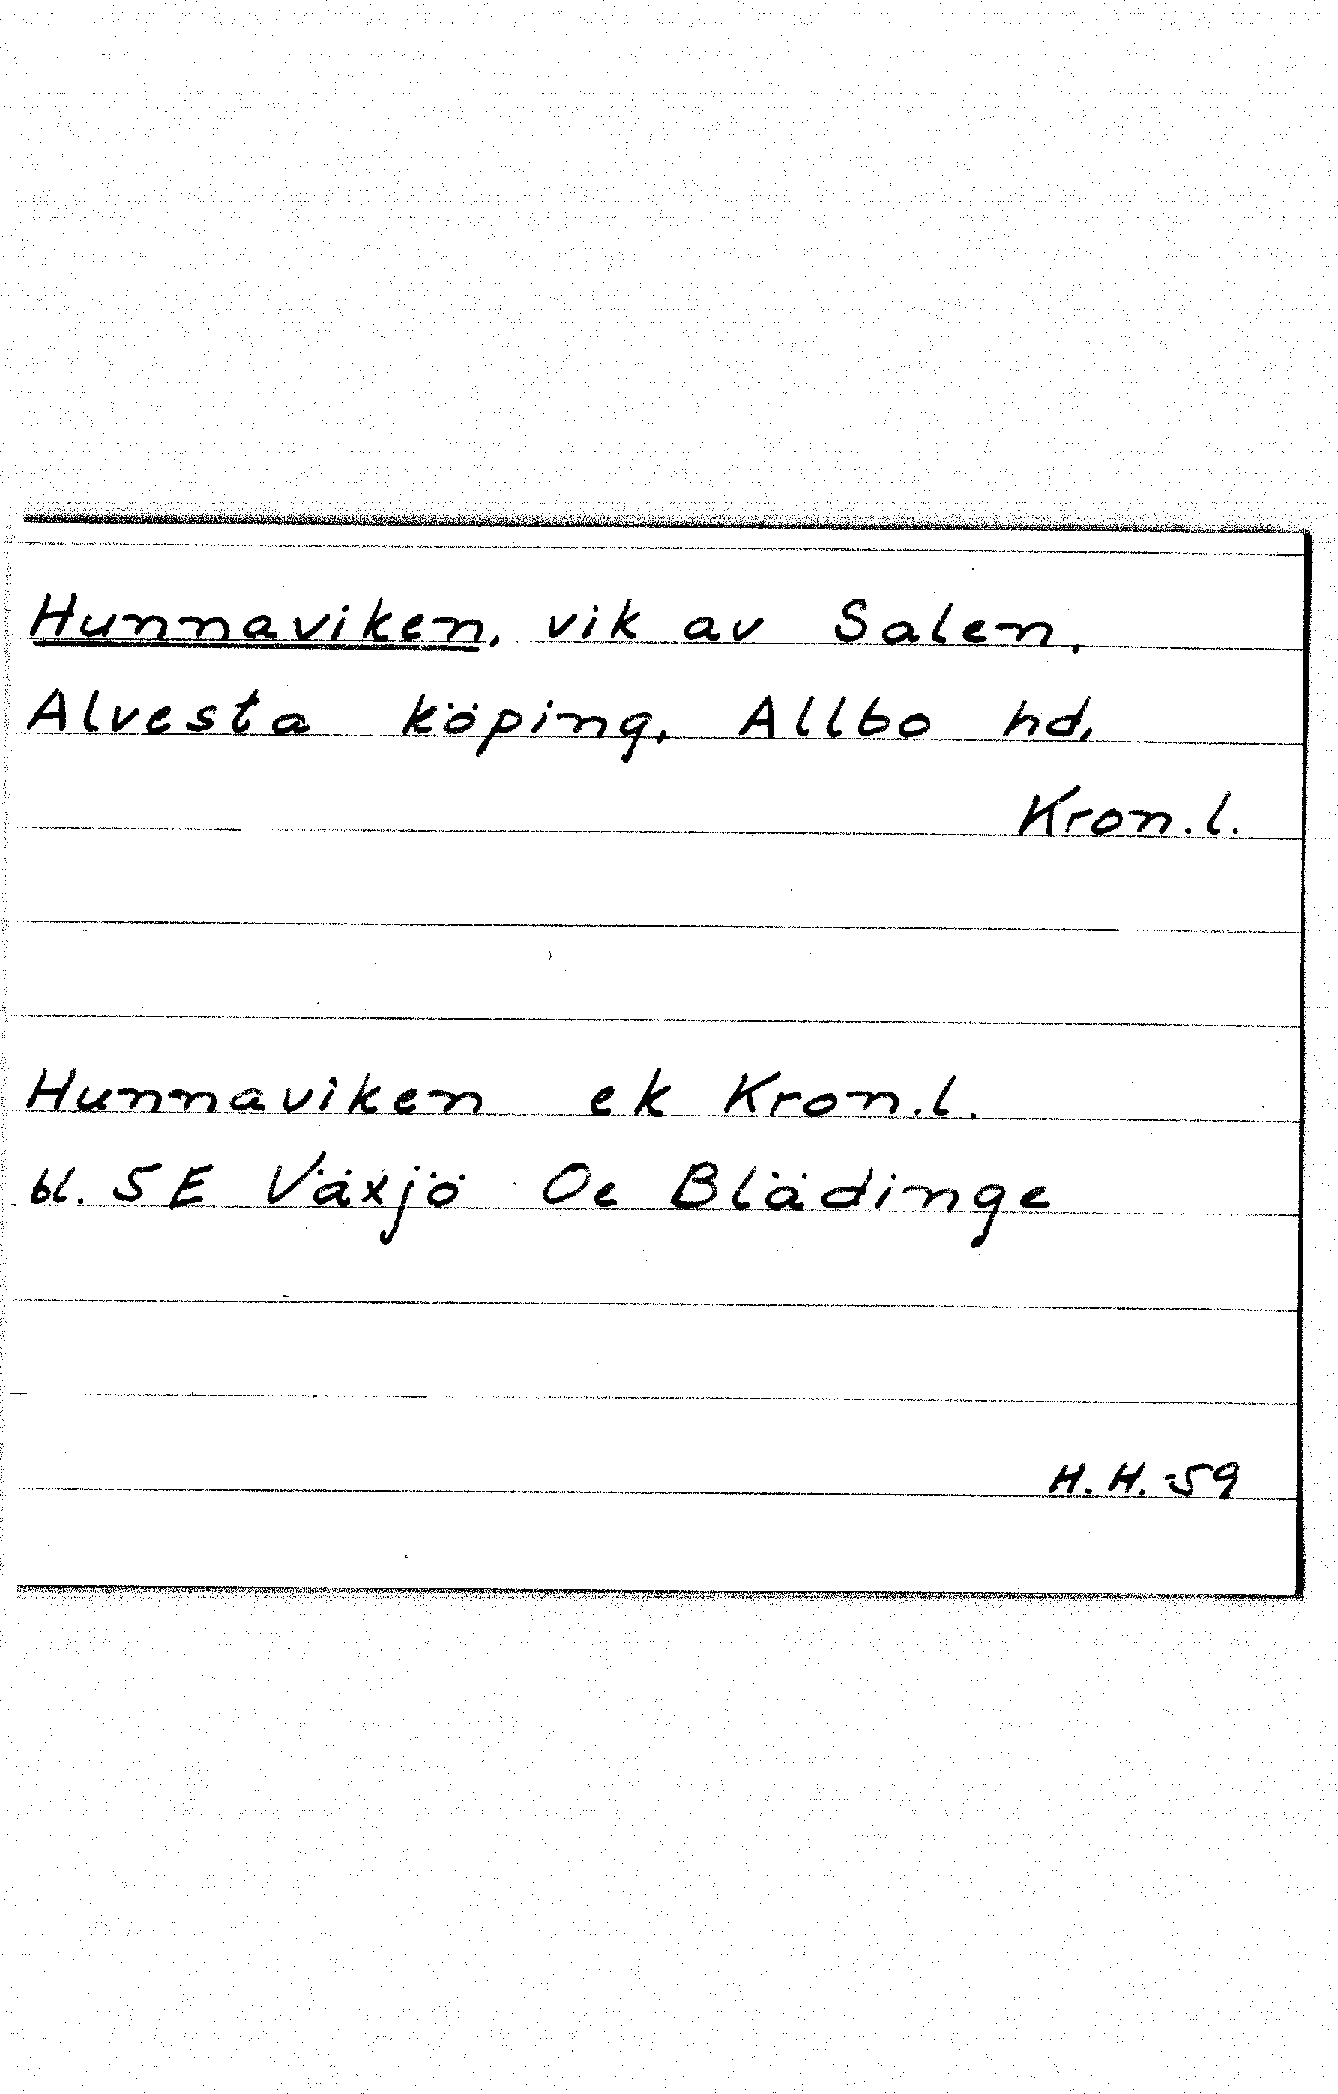 Hunnaviken, vik av Salen,
Alvesta köping, Allbo hd,
Kron.l.
Hunnaviken ek Kron.l.
bl. 5E Växjö Oe Blädinge
H.H.-59